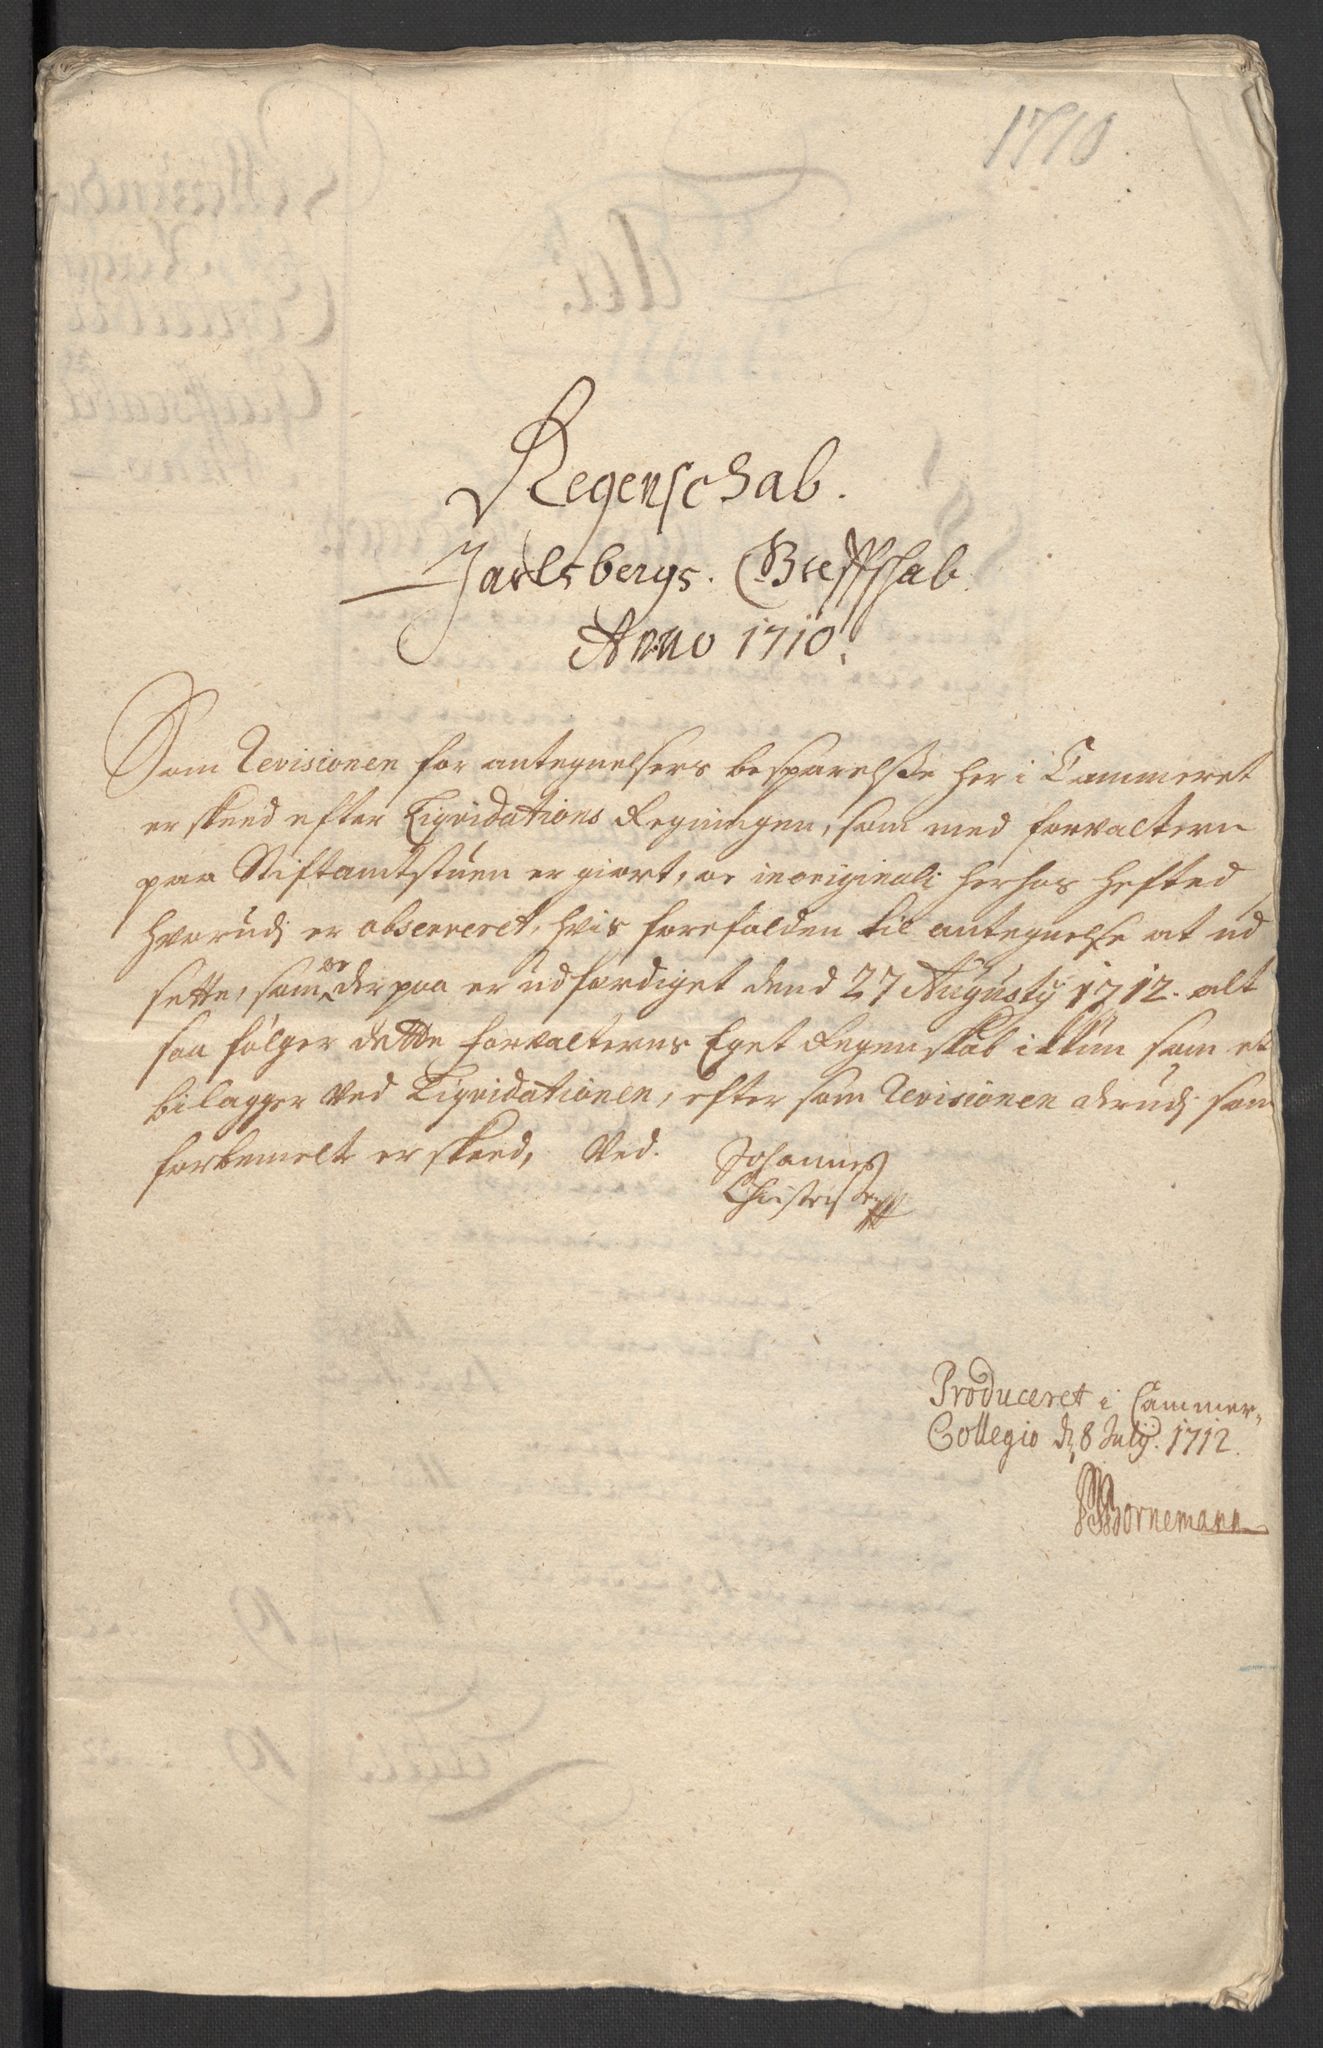 1710
Regenschab.
Jarlsbergs. Greffschab.
Anno 1710.
Som Revisionen for antegnelsers besparelsse her i Cammeret
er skeed efter Liqvidations Regningen, som med forvaltern
paa Stiftamtstuen er giort, oc in originali herhos hefted,
hvorudj er observeret, hvis forefalden til antegnelse at ud
sette, som oc derpaa er udfærdiget dend 27 Augusty 1712. alt
saa følger dette forvalterns Eget Regenskab ikkun som et
bilagger ved Liqvidationen, efter som Revisionen derudj som
forbemelt er skeed, Ved.
Johannes
Christens
Produceret i Cammer-
Collegio d. 8 July. 1712.
Bornemann